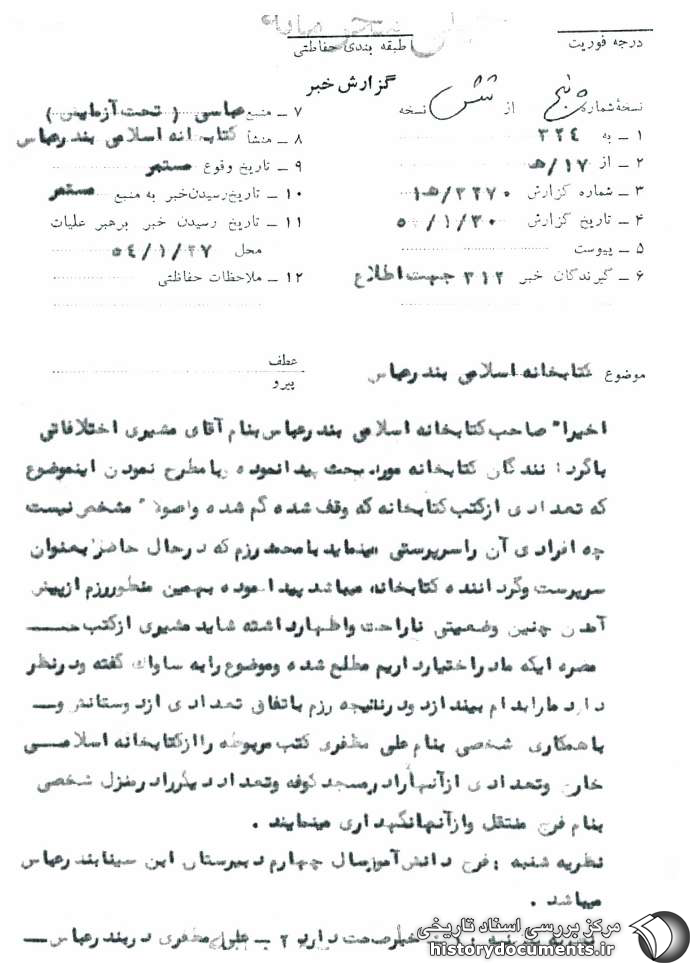 درجه فوریت
طبقه بندی حفاظتی
گزارش خبر
نسخهٔ شماره پنج از شش نسخه
۱ ــ به ۳۲۴
۲ ــ از ۱۷/هـ
۳ ــ شماره گزارش
۴ ــ تاریخ گزارش
۵ ــ پیوست
۶ ــ گیرندگان خبر ۳۱۲ جهت اطلاع
۷ ــ منبع عباسی ( تحت آزمایش )
۸ ــ منشأ کتابخانه اسلامی بندرعباس
۹ ــ تاریخ وقوع مستمر
۱۰ ــ تاریخ رسیدن خبر به منبع مستمر
۱۱ ــ تاریخ رسیدن خبر برهبر عملیات
محل ۵۴/۱/۲۷
۱۲ ــ ملاحظات حفاظتی
عطف
پیرو
موضوع کتابخانه اسلامی بندرعباس
اخیرا" صاحب کتابخانه اسلامی بندرعباس بنام آقای مشیری اختلافاتی
باگردانندگان کتابخانه مورد بحث پیدا نموده و با مطرح نمودن اینموضوع
که تعدادی از کتب کتابخانه که وقف شده گم شده و اصولا" مشخص نیست
چه افرادی آن را سرپرستی مینماید با محمد رزم که در حال حاضر بعنوان
سرپرست و گرداننده کتابخانه میباشد پیدا نموده بهمین منظور رزم از پیش
آمدن چنین وضعیتی ناراحت و اظهار داشته شاید مشیری از کتب
مضره ایکه ما در اختیار داریم مطلع شده و موضوع را به ساواک گفته و در نظر
دارد ما را بدام بیندازد و در نتیجه رزم باتفاق تعدادی از دوستانش و
با همکاری شخصی بنام علی مظفری کتب مربوطه را از کتابخانه اسلامی
خارج و تعدادی از آنها را در مسجد کوفه و تعداد دیگر را در منزل شخصی
بنام فرج منتقل و از آنها نگهداری مینمایند .
نظریه شنبه : فرج دانش آموز سال چهارم دبیرستان ابن سینا بندرعباس
میباشد .
خبر صحت دارد ۲ ــ علی مظفری در بندرعباس
مرکز بررسی اسناد تاریخی
historydocuments.ir